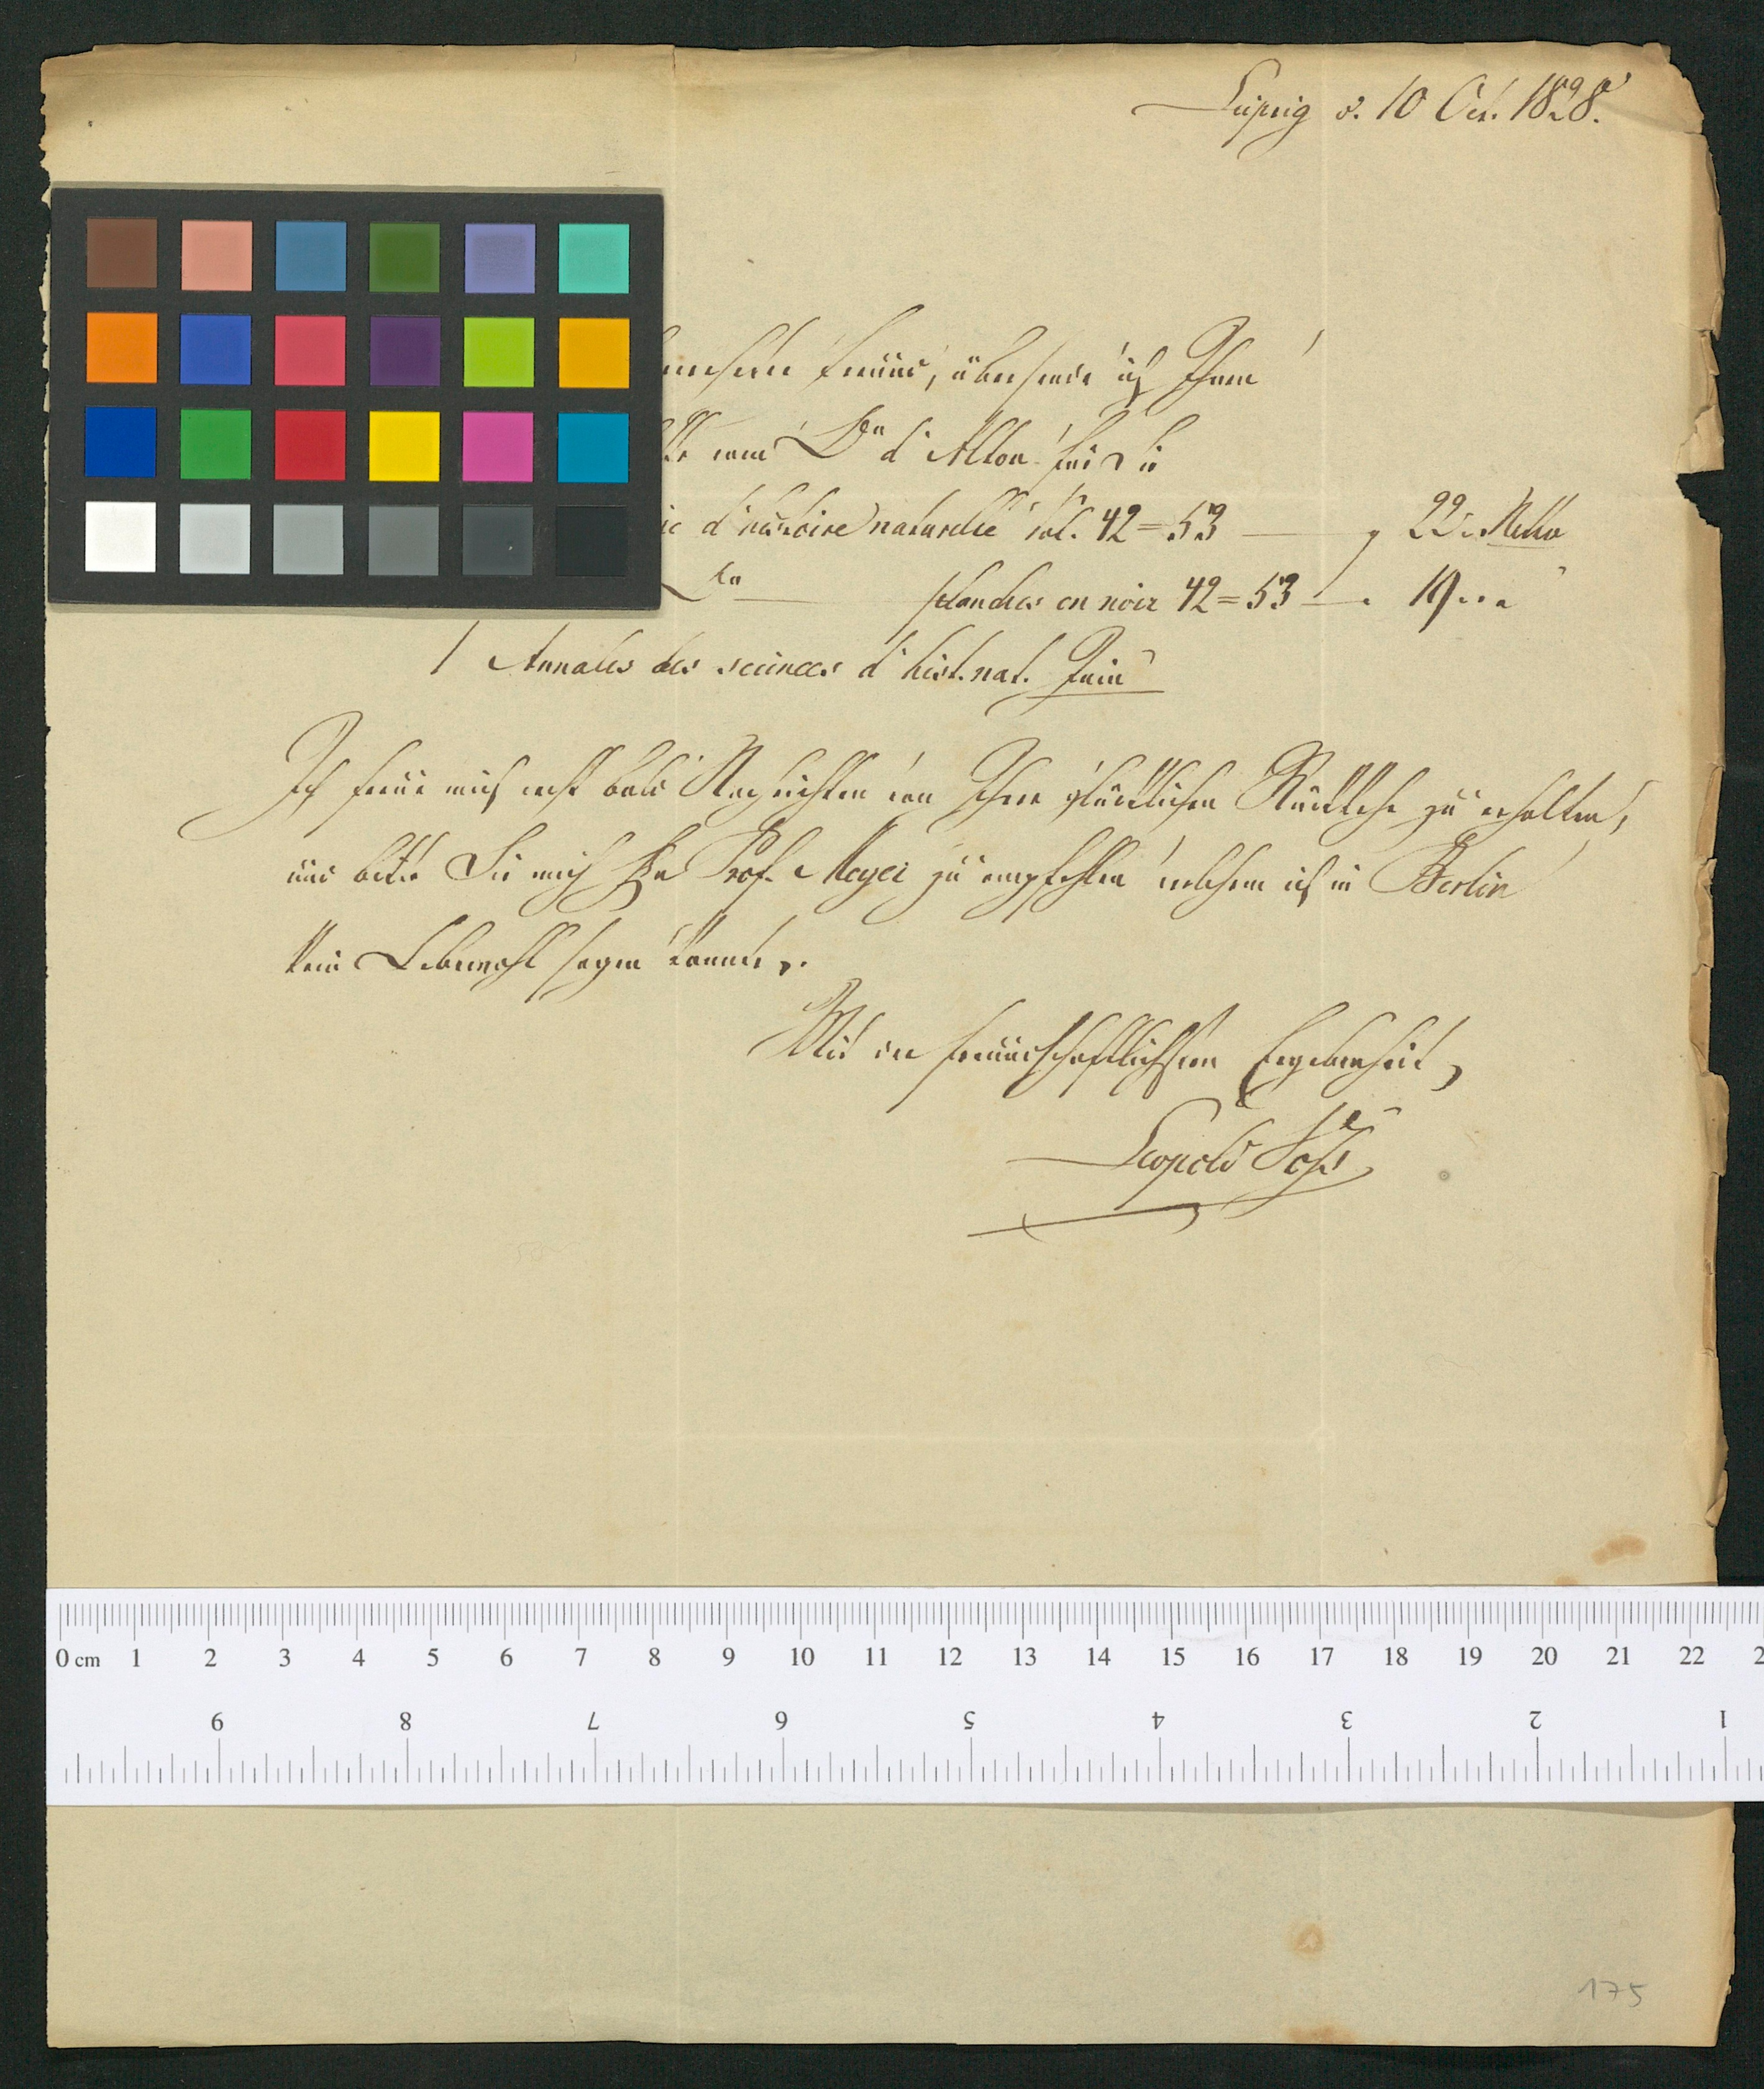 Leipzig d. 10 Oct. 1828.
Freund, übersende ich Ihnen
Dr d'Alton für Sie
d'histoire naturelle vol. 42=53 — 22 Netto
planches en noir 42=53 — 19
1 Annales des sciences d'hist. nat. Juin
Ich freue mich recht bald Nachrichten von Ihrer glücklichen Rückkehr zu erhalten,
und bitte Sie mich Hn Prof. Meyer zu empfehlen welchem ich in Berlin
kein Lebewohl sagen konnte.
Mit der freundschaftlichsten Ergebenheit,
Leopold Voß
0 cm 1 2 3 4 5 6 7 8 9 10 11 12 13 14 15 16 17 18 19 20 21 22
9 8 7 6 5 4 3 2 1
175